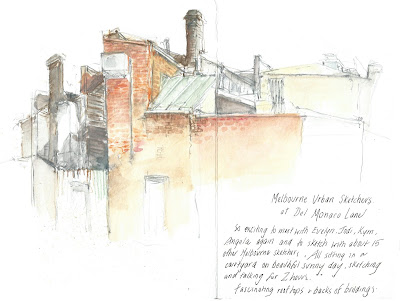 Melbourne Urban Sketchers
at Del Monaco Lane
So exciting to meet with Evelyn, Jodi, Kym,
Angela again and to sketch with about 15
other Melbourne sketchers. All sitting in a
courtyard on beautiful sunny day, sketching
and talking for 2 hours.
Fascinating rooftops & backs of buildings.